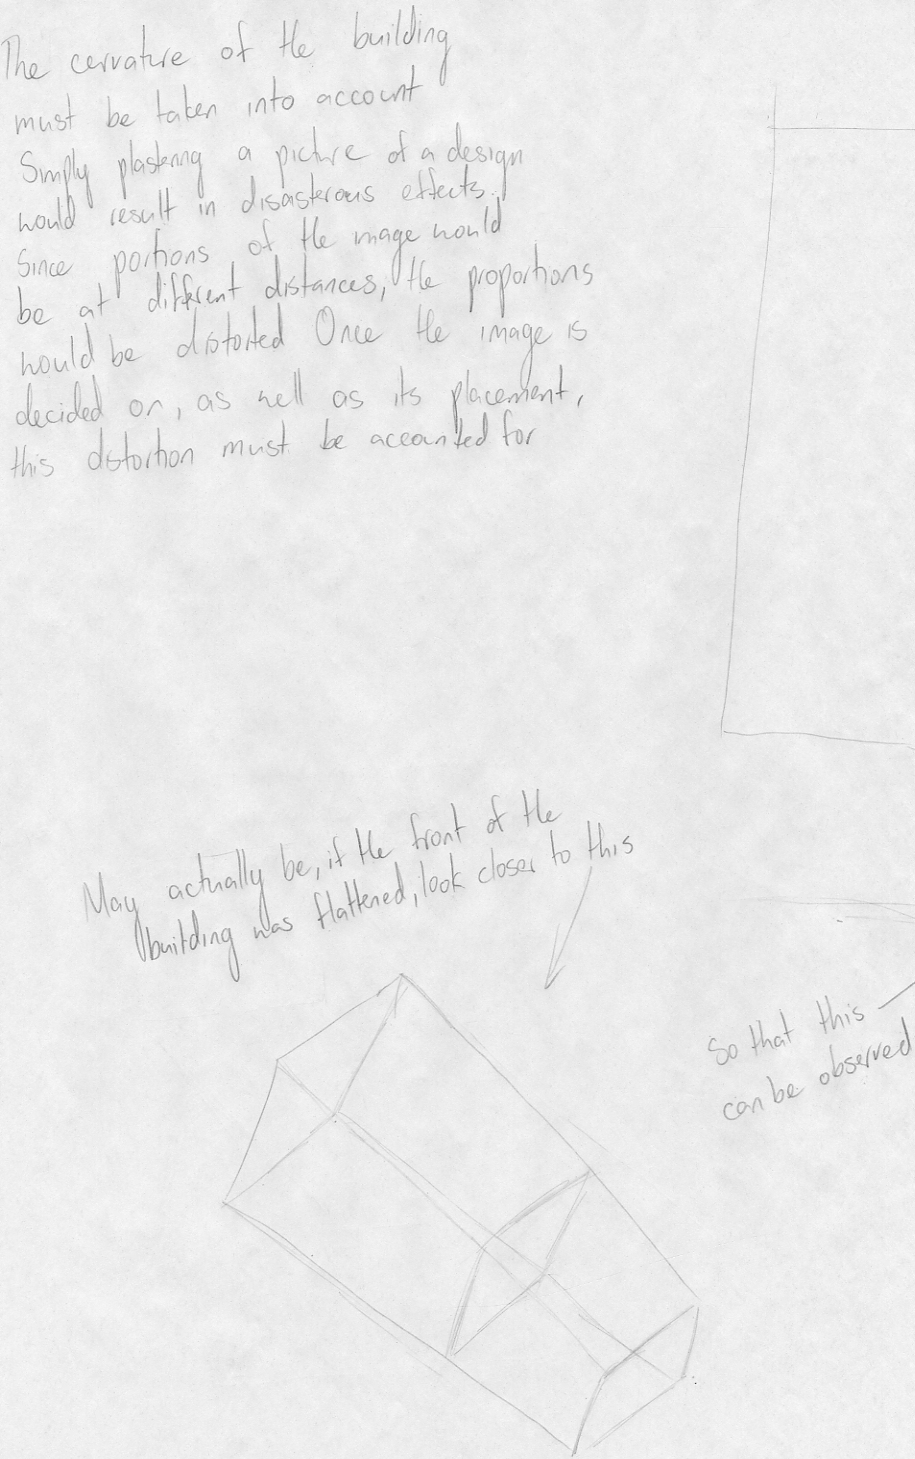 The cervature of the building
must be taken into account
Simply plastering a picture of a design
would result in disasterous effects.
Since portions of the image would
be at different distances, the proportions
would be distorted Once the image is
decided on, as well as its placement,
this distortion must be accounted for
May actually be, if the front of the
building was flattened, look closer to this
So that this
can be observed